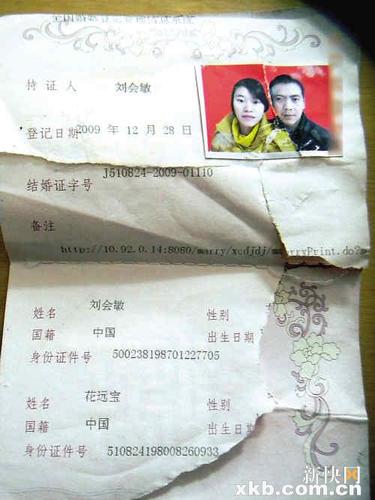 持证人 刘会敏
登记日期 2009 年 12 月 28 日
结婚证字号 J510824-2009-01110
备注
http://10.92.0.14:8080/marry/xcdjdj/marryPrint.do?
姓名 刘会敏 性别
国籍 中国 出生日期
身份证件号 500238198701227705
姓名 花远宝 性别
国籍 中国 出生日期
身份证件号 510824198008260933
新快网
xkb.com.cn